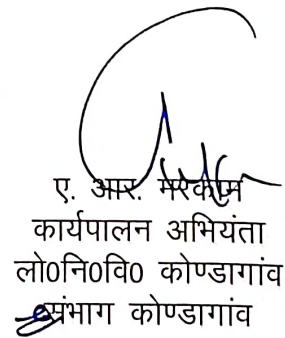 ए. आर. मरकाम
कार्यपालन अभियंता
लो0नि0वि0 कोण्डागांव
संभाग कोण्डागांव